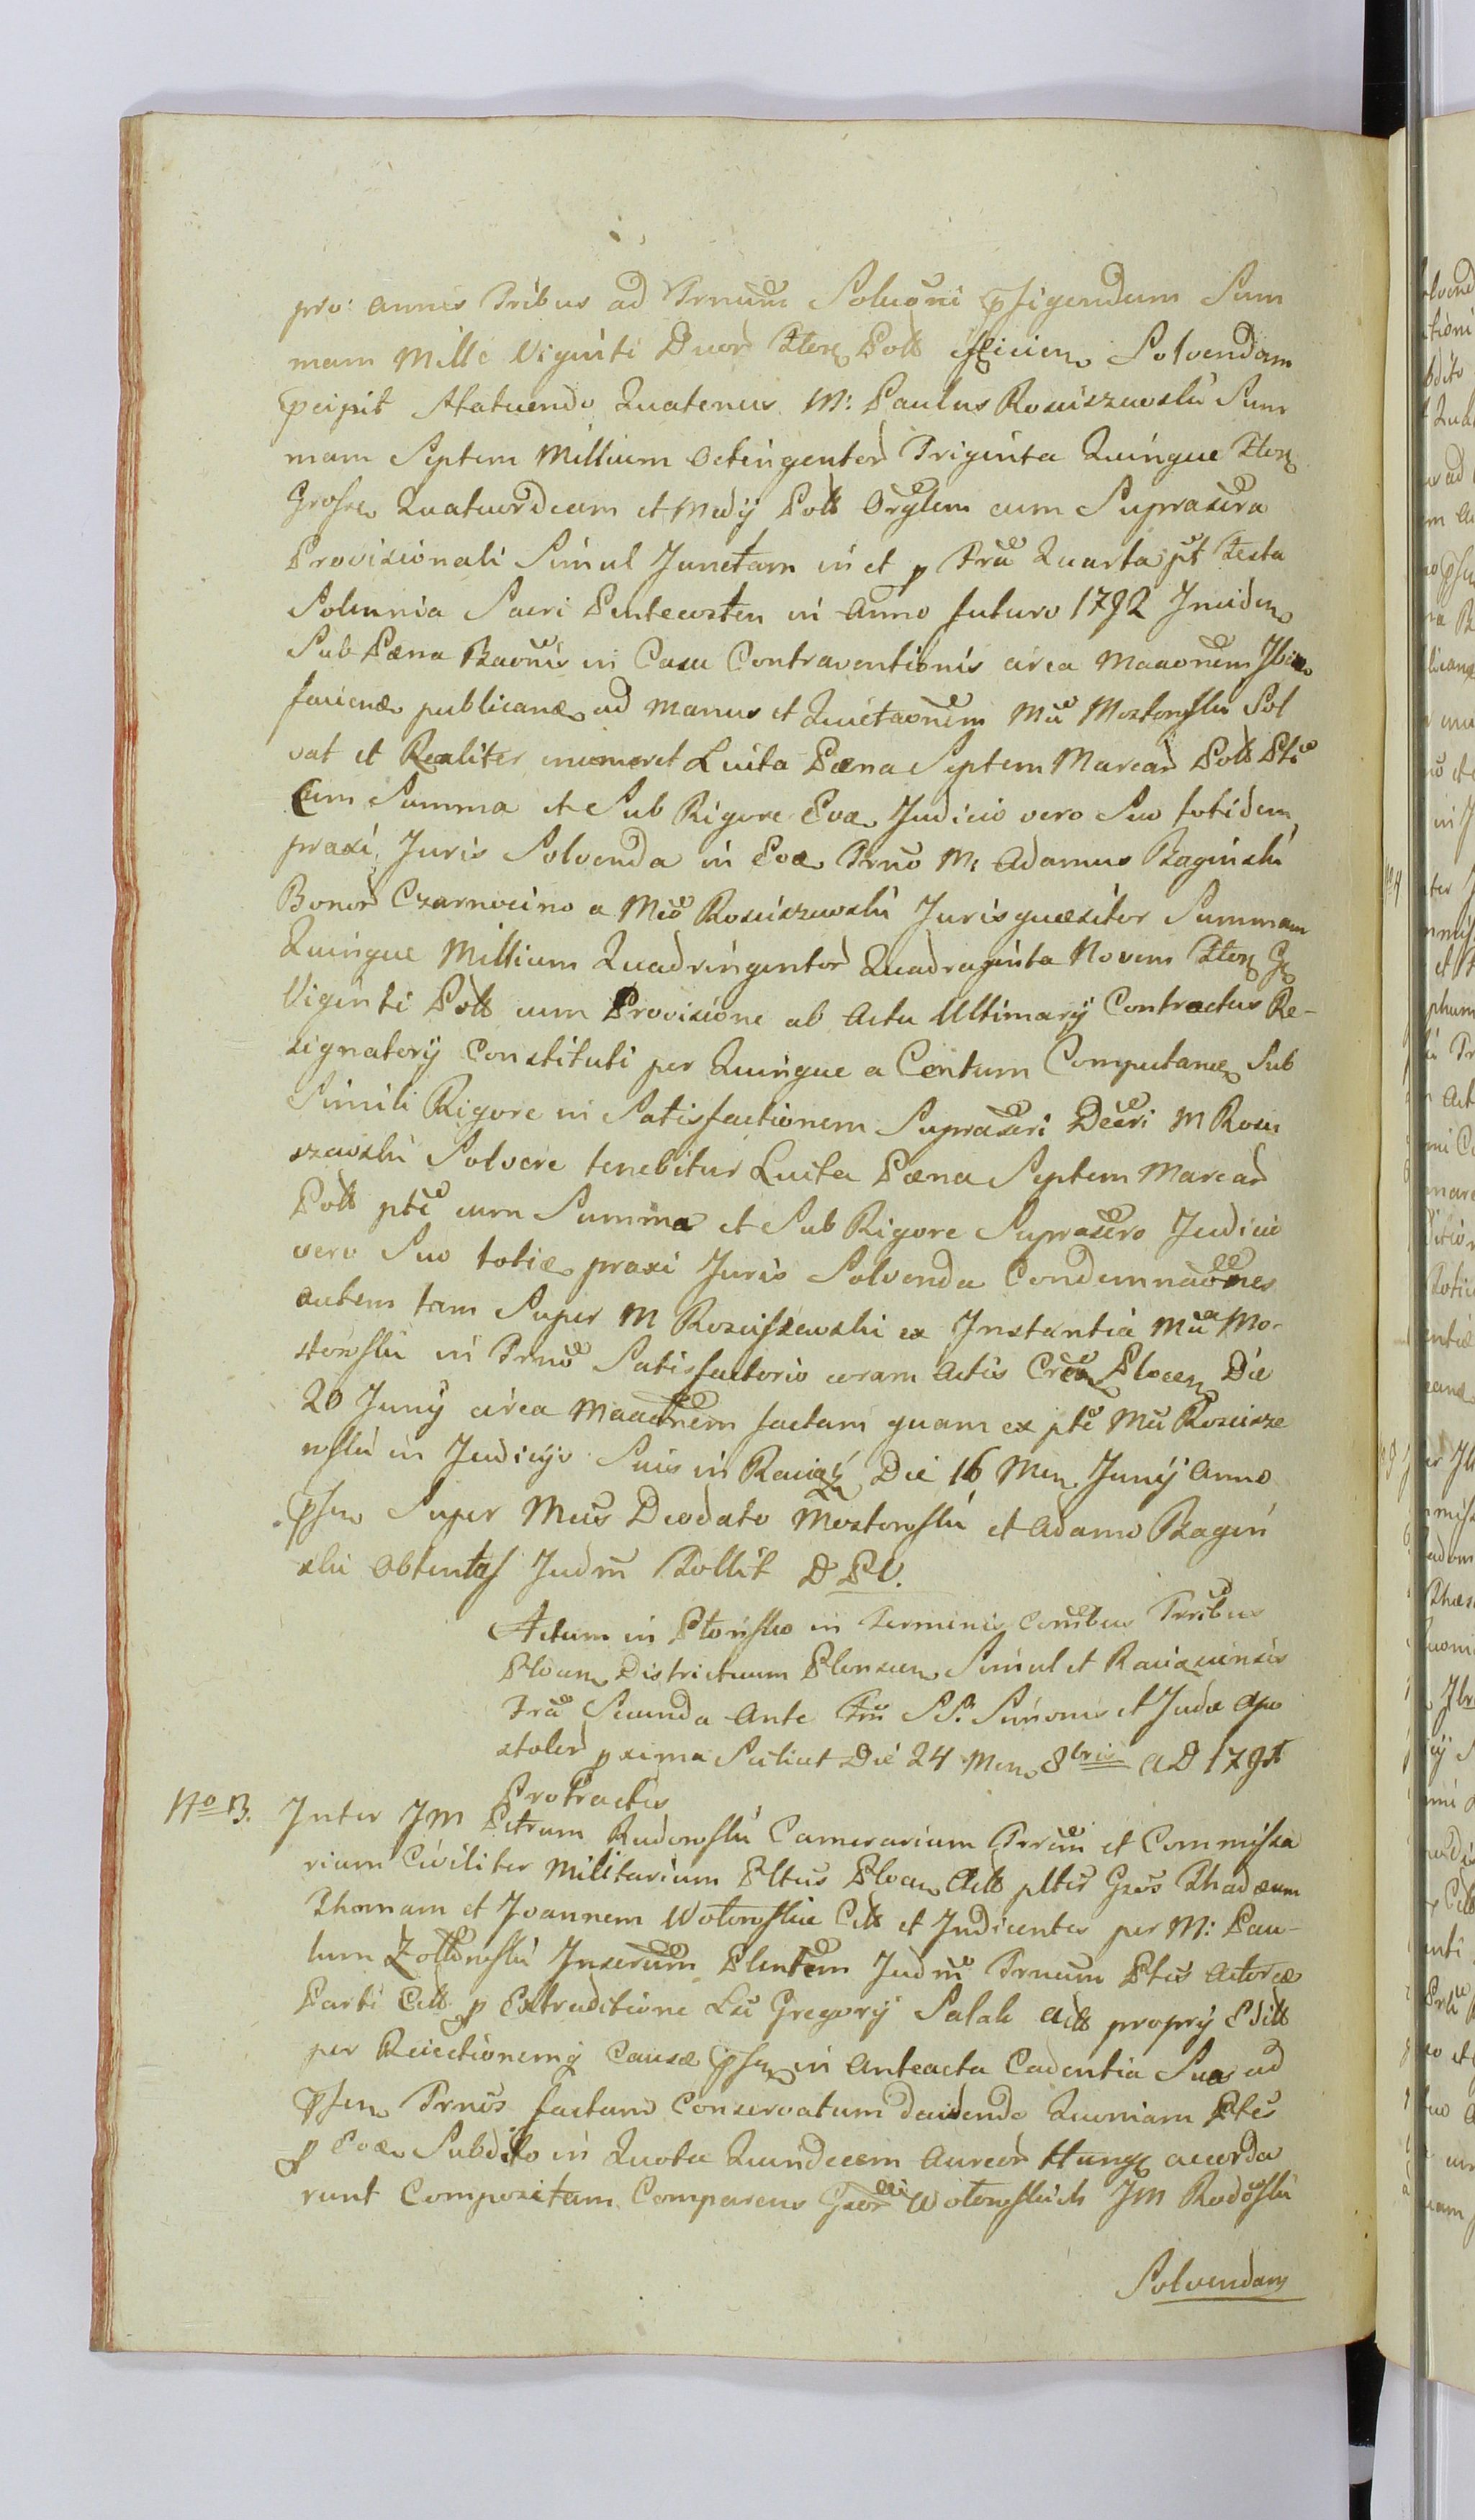 pro annis Tribus ad Trnum Soluoni pfigendum Sum
mam Mille Viginti Duor flor Poll efficien Solvendam
pcipit Statuendo Quatenus M: Paulus Rosciszewski Sum
mam Septem Millium Octingentor Triginta Quinque flor
Grosse Quatuordecim et Medij Poll Orglem cum Suprascra
Provisionali Simul Junctam in et p Fria Quarta pt Festa
Solennia Sacri Pentecosten in Anno futuro 1792 Inciden
Sub Pæna Baonis in Casu Contraventionis circa Maaonem Ibid
faciend publicand ad Manus et Quietaonem Mci Mostowski Sol
vat et Realiter enumeret Luita Pæna Septem Marcar Poll Pti
Cum Summa et Sub Rigore Eod Judicio vero Suo totidem
praxi Juris Solvenda in Eod Trno M: Adamus Baginski
Bonor Czarnocino a Mco Rosciszewski Jurisquæsitor Summam
Quinque Millium Quadringentor Quadraginta Novem flor G
Viginti Poll cum Provisione ab Actu Ultimarij Contractus Re-
signatorij Constituti per Quinque a Centum Computand Sub
Simili Rigore in Satisfactionem Suprascri Decri M Rosci
szewski Solvere tenebitur Luita Pæna Septem Marcar
Poll pti cum Summa et Sub Rigore Suprascro Judicio
vero Suo totid praxi Juris Solvenda Condemnaones
autem tam Super M Rosciszewski ex Instantia Mci Mo-
stowski in Trno Satisfactorio coram Actis Plocen Die
20 Junij circa Maaonem factam quam ex pte Mci Roscisze
wski in Judicijs Suis in Raciąż Die 16 Men Junij Anno
psen Super Mcis Deodato Mostowski et Adamo Bagiń
ski Obtentas Judm Tollit D P V.
Actum in Płońsko in Terminis Conibus Trribus
Plocen Districtuum Plonscen Simul et Raciązcensis
Fria Secunda Ante Fm S S. Simonis et Judæ Apo
stolor pxima Scilicet Die 24 Men 8bris A D 1791
Protractis
No 13. Inter J M Petrum Rudowski Camerarium Trrum et Commissa
rium Civiliter Militarium Pltus Plocen Act pltes Gsos Thadæum
Thomam et Joannem Wotowskie Citt et Judicentes per M: Pau-
lum Zołtowski Inserum Plentem Judm Trnum Ptis Actoreæ
Parti Citt p Extraditione Lii Gregorij Salak act proprij Editt
per Reiectionemq Causæ psen in Anteacta Cadentia Sua ad
psen Trnos factam Conservatum decidendo Quoniam Ptes
p Eod Subdito in Quota Quindecem Aureor Hung accorda
runt Compositam Comparens Gsor Wotowskich J M Rudoski
Solvendam